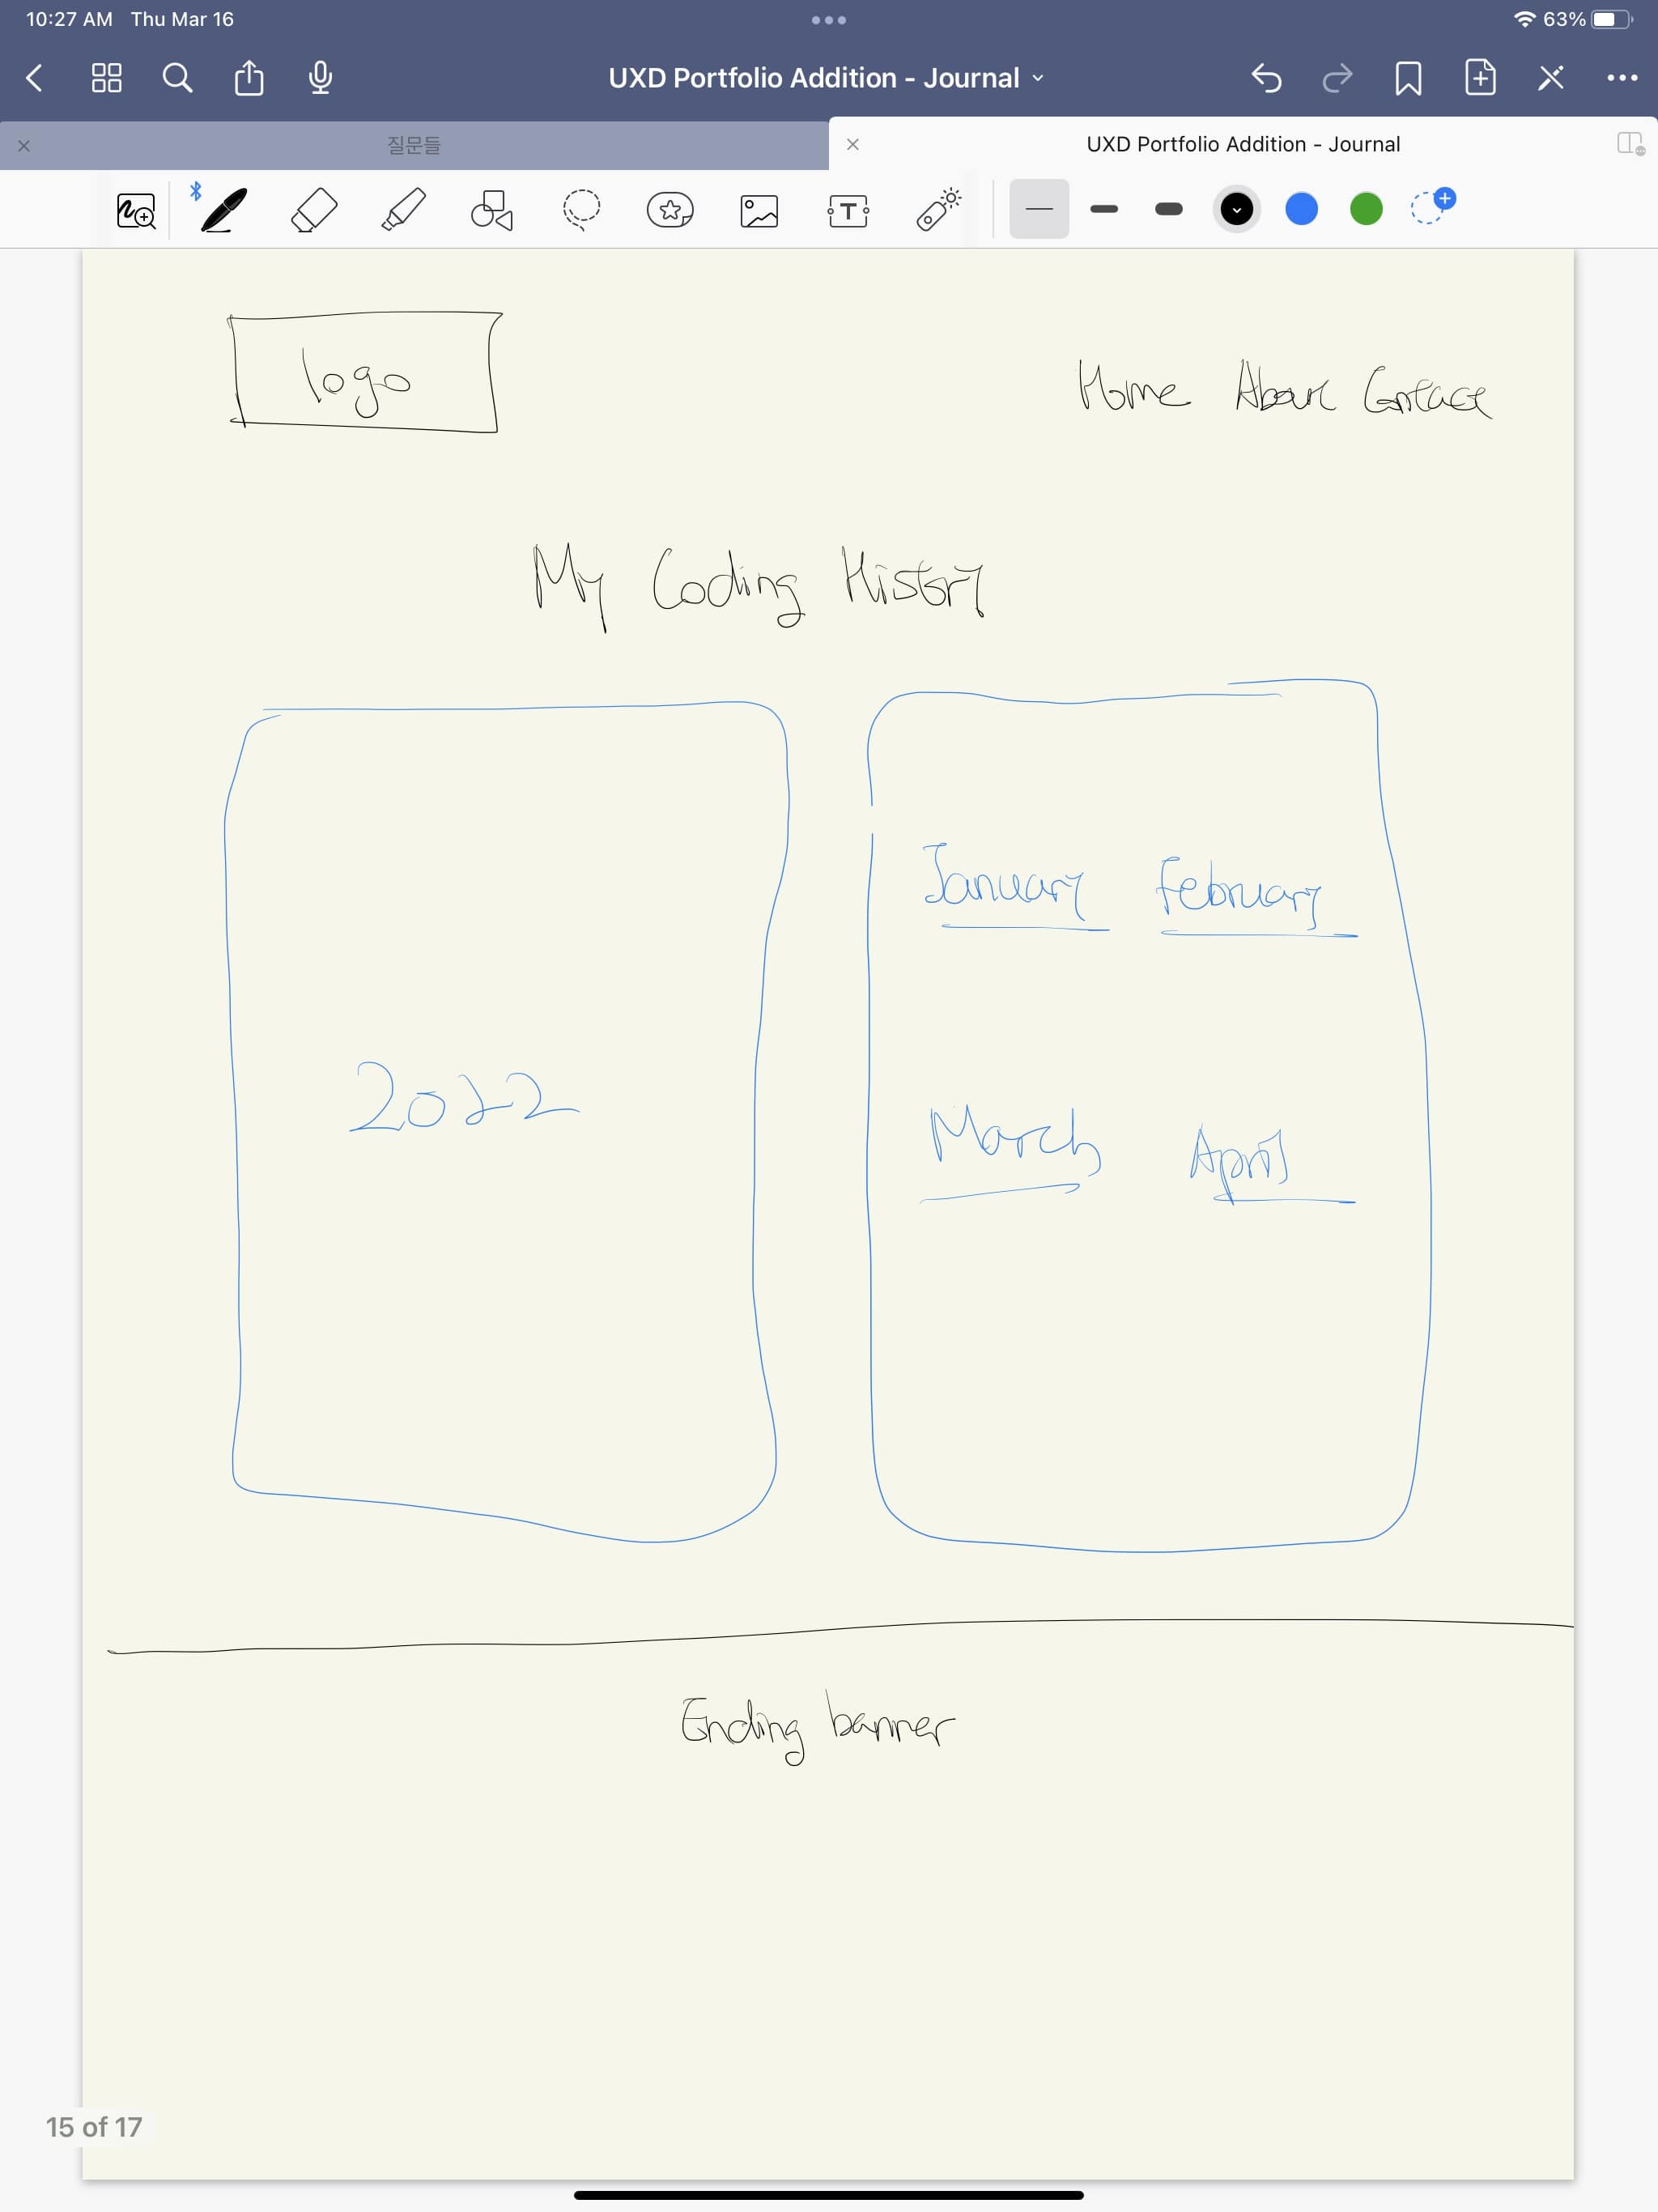 10:27 AM Thu Mar 16
63%
UXD Portfolio Addition - Journal
질문들
UXD Portfolio Addition - Journal
logo
Home About Contact
My Coding History
January February
2022
March April
Ending banner
15 of 17